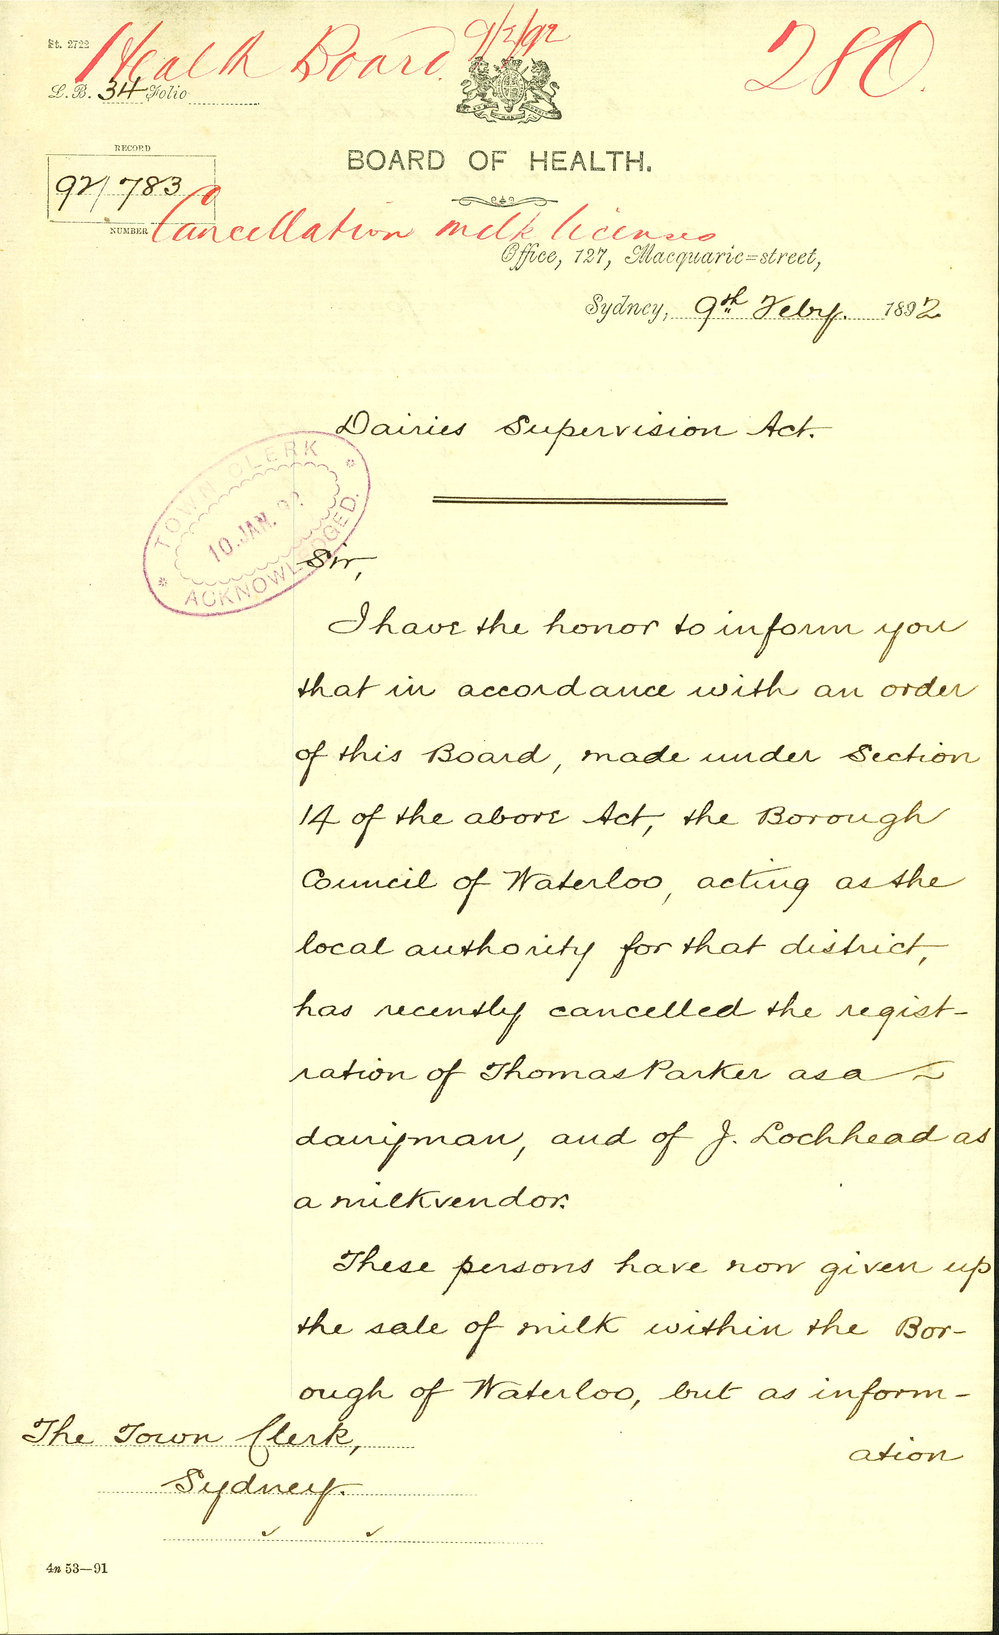 St. 2722
Health Board. 9/2/92
280.
L.B. 34 Folio
BOARD OF HEALTH.
RECORD
92/783
NUMBER
Cancellation milk licenses
Office, 127, Macquarie=street,
Sydney, 9th Feby. 1892
Dairies Supervision Act.
TOWN CLERK
10.JAN.92
ACKNOWLEDGED.
Sir,
I have the honor to inform you
that in accordance with an order
of this Board, made under Section
14 of the above Act, the Borough
Council of Waterloo, acting as the
local authority for that district,
has recently cancelled the regist-
ration of Thomas Parker as a
dairyman, and of J. Lochhead as
a milkvendor.
These persons have now given up
the sale of milk within the Bor-
ough of Waterloo, but as inform-
ation
The Town Clerk,
Sydney.
4n 53—91